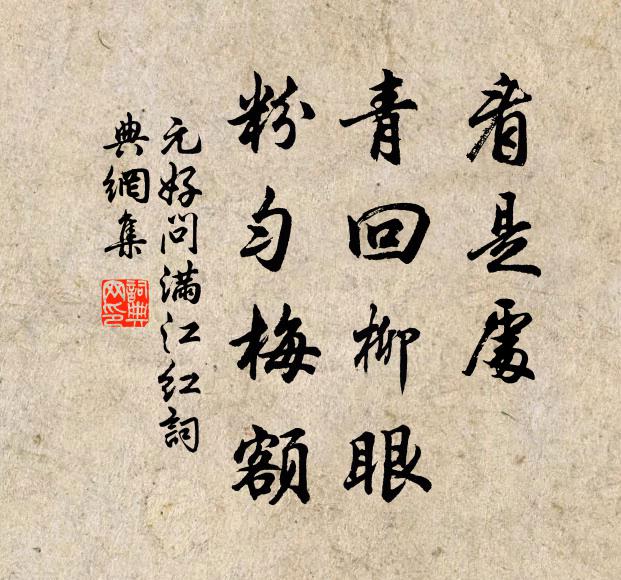 看是處
青回柳眼
粉匀梅額
元好問滿江紅詞
典網集
詞典
网印